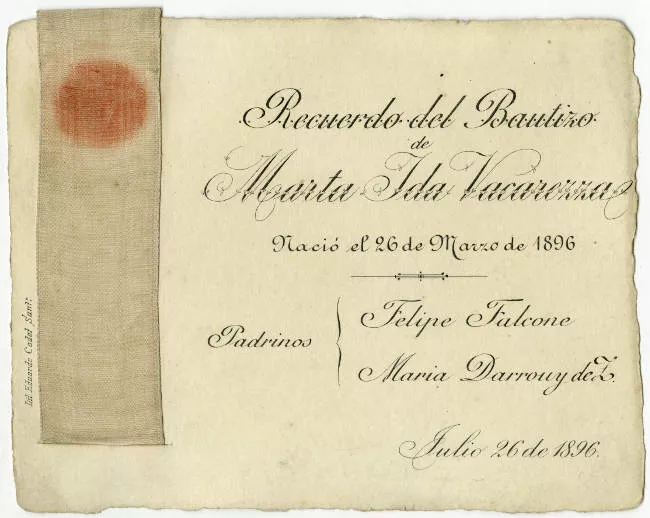 Recuerdo del Bautizo
de
Marta Ida Vacarezza
Nació el 26 de Marzo de 1896
Padrinos
Felipe Falcone
Maria Darrouy de Z.
Julio 26 de 1896.
Lit. Eduardo Cadot Sant?